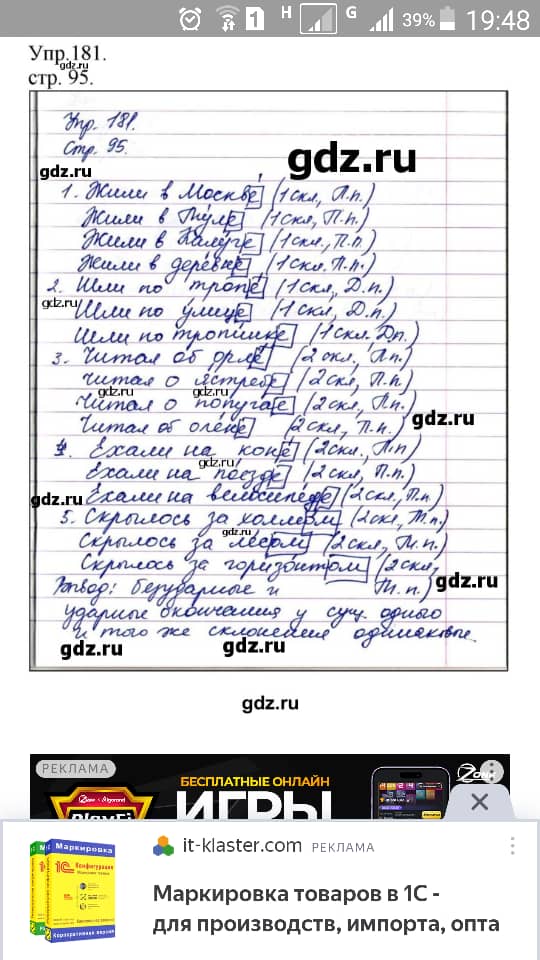 H G 39% 19:48
1
Упр.181.
gdz.ru
стр. 95.
Упр. 181.
Стр. 95.
gdz.ru
gdz.ru
1. Жили в Москве (1 скл, П.п.)
Жили в Туле (1 скл, П.п.)
Жили в Калуге (1 скл., П.п.)
Жили в деревне (1 скл. П.п.)
2. Шли по тропе (1 скл, Д.п.)
gdz.ru
Шли по улице (1 скл, Д.п.)
Шли по тропинке (1 скл. Дп.)
3. Читал об орле (2 скл, П.п)
читал о ястребе (2 скл, П.п)
gdz.ru gdz.ru
Читал о попугае (2 скл, П.п.)
gdz.ru
Читал об олене (2 скл, П.п.)
4. Ехали на коне (2 скл., П.п)
gdz.ru
Ехали на поезде (2 скл, П.п.)
gdz.ru
Ехали на велосипеде (2 скл., П.п)
5. Скрылось за холмом (2 скл, Т.п.)
gdz.ru
Скрылось за лесом (2 скл, Т.п.)
Скрылось за горизонтом (2 скл,
Т.п.)
gdz.ru
Вывод: безударные и
ударные окончания у сущ. одного
и того же склонения одинаковые.
gdz.ru
gdz.ru
gdz.ru
РЕКЛАМА
БЕСПЛАТНЫЕ ОНЛАЙН
ИГРЫ
it-klaster.com РЕКЛАМА
Маркировка
1С Конфигурация
Корпоративная версия
Маркировка товаров в 1С -
для производств, импорта, опта